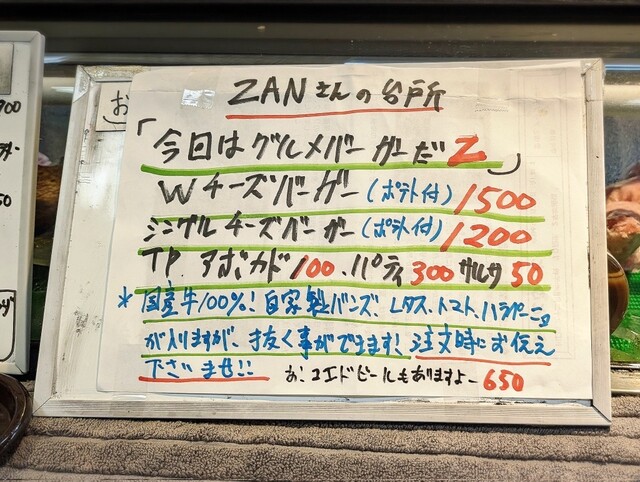 ZANさんの台所
「今日はグルメバーガーだZ」
Wチーズバーガー(ポテト付)1500
シングルチーズバーガー(ポテト付)1200
TP.アボカド100、パティ300 サルサ50
*国産牛100%!自家製バンズ、レタス、トマト、ハラペーニョ
が入りますが、抜く事ができます!注文時にお伝え
下さいませ!!
あ!コエドビールもありますよー650
お
900
50